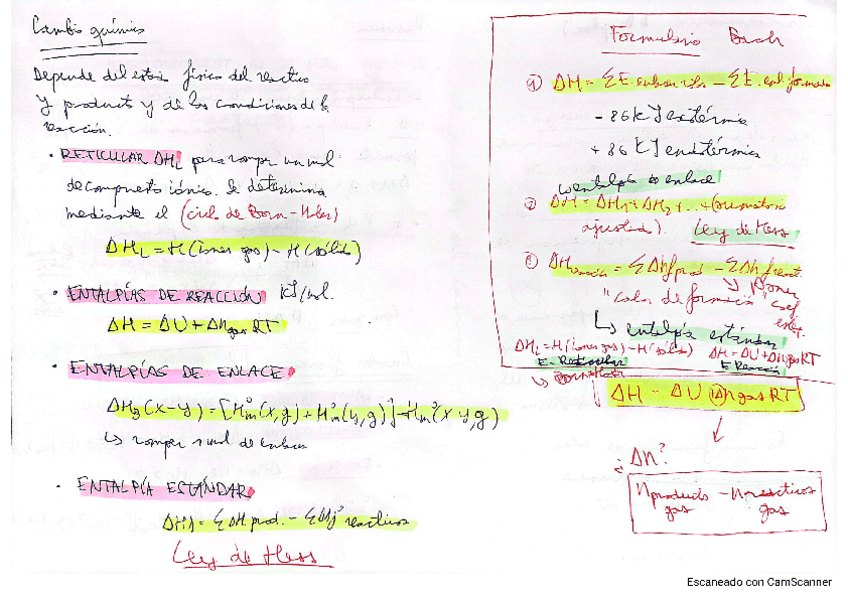 Cambio químico
Depende del estado físico del reactivo
y producto y de las condiciones de la
reacción.
· RETICULAR ΔHL para romper un mol
de compuesto iónico. Se determina
mediante el (ciclo de Born-Haber)
ΔHL = H(iones gas) - H(sólido)
· ENTALPÍAS DE REACCIÓN KJ/mol.
ΔH = ΔU + Δngas RT
· ENTALPÍAS DE ENLACE
ΔH(x-y) = [H°m(x,g) + H°m(y,g)] - H°m(xy,g)
↳ romper 1 mol de enlaces
· ENTALPÍA ESTÁNDAR
= Σ ΔH prod. - Σ reactivos
Ley de Hess
Formulario Bach
① ΔH = ΣE. - ΣE. enl. formados
- 86 kJ exotérmica
+ 86 KJ endotérmica
entalpía enlace
② ΔH = ΔH1 + ΔH2 + ... + (
ajustado). Ley de Hess
③ ΔHreacción = Σ ΔHf prod - Σ ΔHf react.
↳ Poner
"calor de formación" coef
↳ entalpía estándar
ΔHL = H(iones gas) - H(sólido) ΔH = ΔU + Δngas RT
E. Reticular E Reacción
↳ Born Haber
ΔH = ΔU + Δngas RT
¿Δn?
nproducto - nreactivos
gas gas
Escaneado con CamScanner